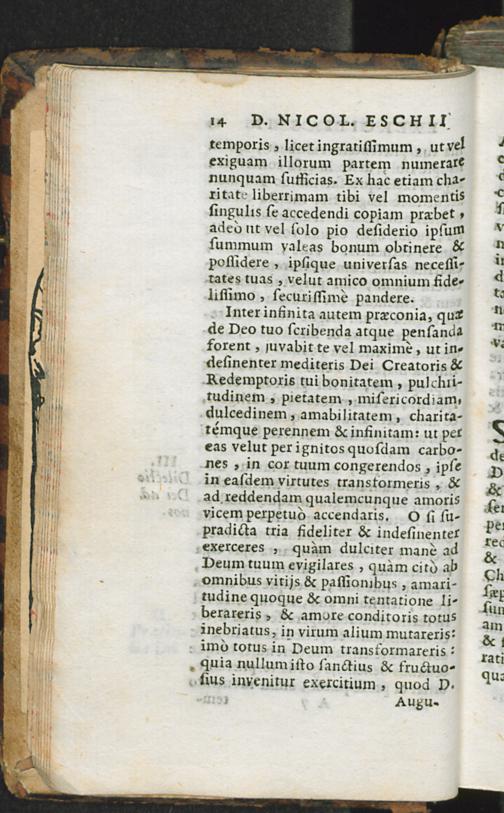 14 D. NICOL. ESCHII
temporis, licet ingratiſſimum, ut vel
exiguam illorum partem numerare
nunquam ſufficias. Ex hac etiam cha-
ritate liberrimam tibi vel momentis
ſingulis ſe accedendi copiam præbet,
adeò ut vel ſolo pio deſiderio ipſum
ſummum valeas bonum obtinere &
poſſidere, ipſique univerſas neceſſi-
tates tuas, velut amico omnium fide-
liſſimo, ſecuriſſimè pandere.
Inter infinita autem præconia, quæ
de Deo tuo ſcribenda atque penſanda
forent, juvabit te vel maximè, ut in-
deſinenter mediteris Dei Creatoris &
Redemptoris tui bonitatem, pulchri-
tudinem, pietatem, miſericordiam,
dulcedinem, amabilitatem, charita-
témque perennem & infinitam: ut per
eas velut per ignitos quoſdam carbo-
nes, in cor tuum congerendos, ipſe
in eaſdem virtutes transformeris, &
ad reddendam qualemcunque amoris
vicem perpetuò accendaris. O ſi ſu-
pradicta tria fideliter & indeſinenter
exerceres, quàm dulciter manè ad
Deum tuum evigilares, quàm citò ab
omnibus vitijs & paſſionibus, amari-
tudine quoque & omni tentatione li-
berareris, & amore conditoris totus
inebriatus, in virum alium mutareris:
imò totus in Deum transformareris:
quia nullum iſto ſanctius & fructuo-
ſius invenitur exercitium, quod D.
Augu-